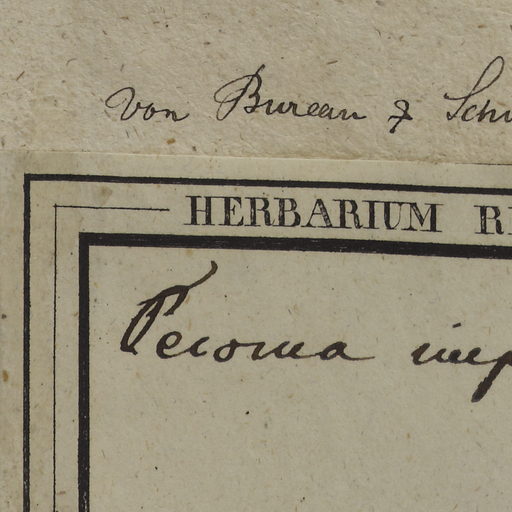 von Bureau & Schu
HERBARIUM R
Tecoma imp